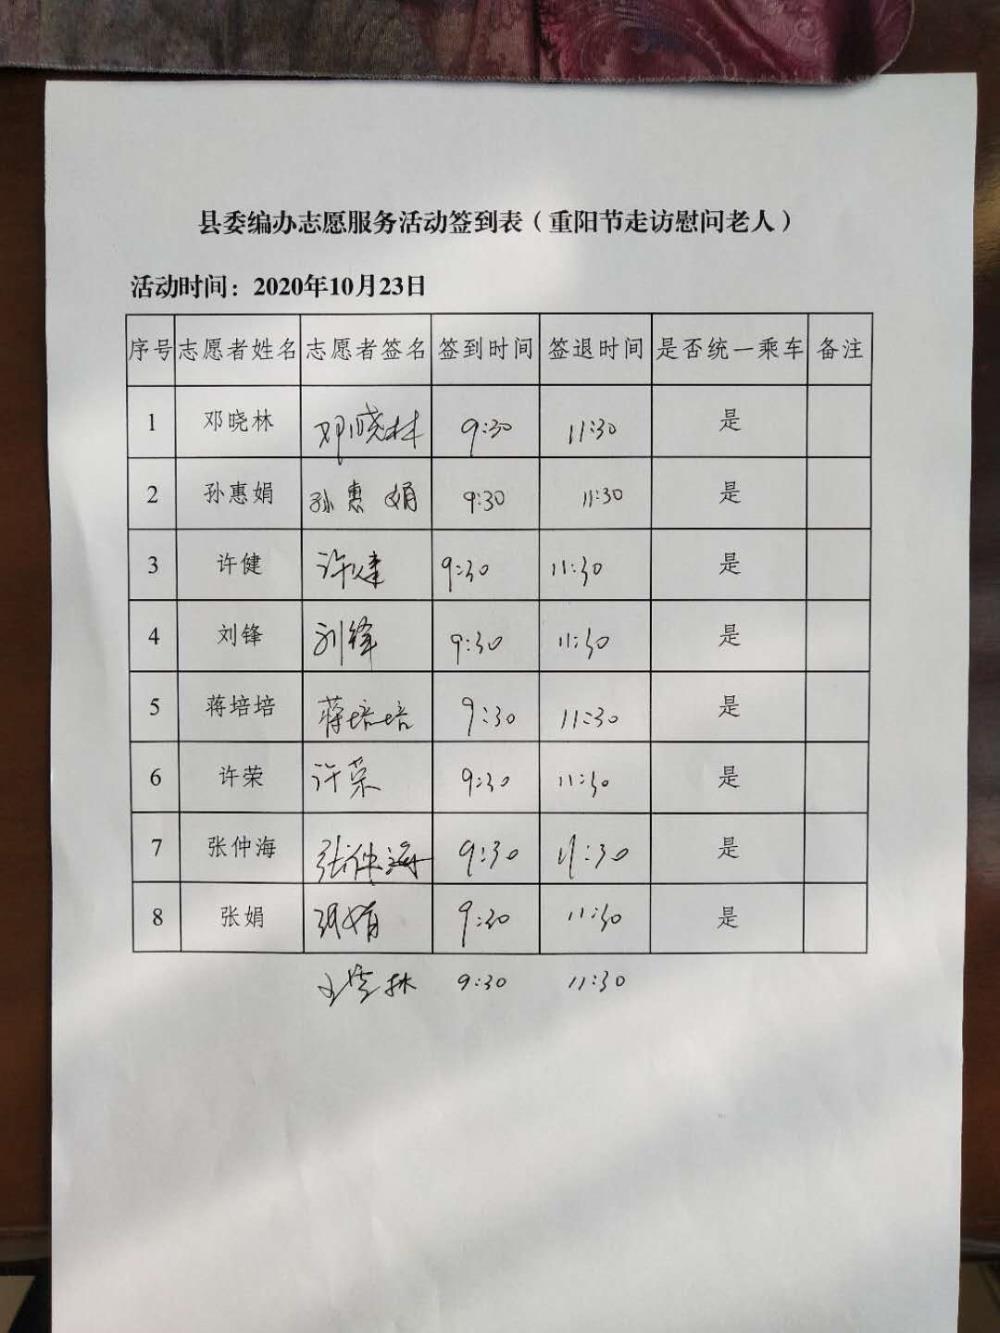 县委编办志愿服务活动签到表（重阳节走访慰问老人）
活动时间：2020年10月23日
序号 志愿者姓名 志愿者签名 签到时间 签退时间 是否统一乘车 备注
1 邓晓林 邓晓林 9:30 11:30 是
2 孙惠娟 孙惠娟 9:30 11:30 是
3 许健 许健 9:30 11:30 是
4 刘锋 刘锋 9:30 11:30 是
5 蒋培培 蒋培培 9:30 11:30 是
6 许荣 许荣 9:30 11:30 是
7 张仲海 张仲海 9:30 11:30 是
8 张娟 张娟 9:30 11:30 是
9:30 11:30